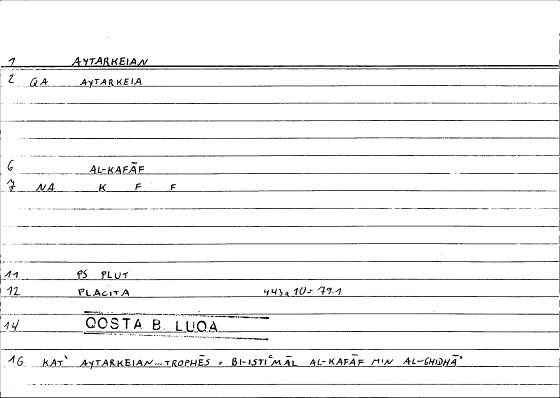 1 AYTARKEIAN
2 QA AYTARKEIA
6 AL-KAFĀF
7 NA K F F
11 PS PLUT
12 PLACITA 443a 10 = 79.1
14 QOSTA B. LUQA
16 KAT' AYTARKEIAN...TROPHĒS = BI-ISTIʿMĀL AL-KAFĀF MIN AL-GHIDHĀʾ